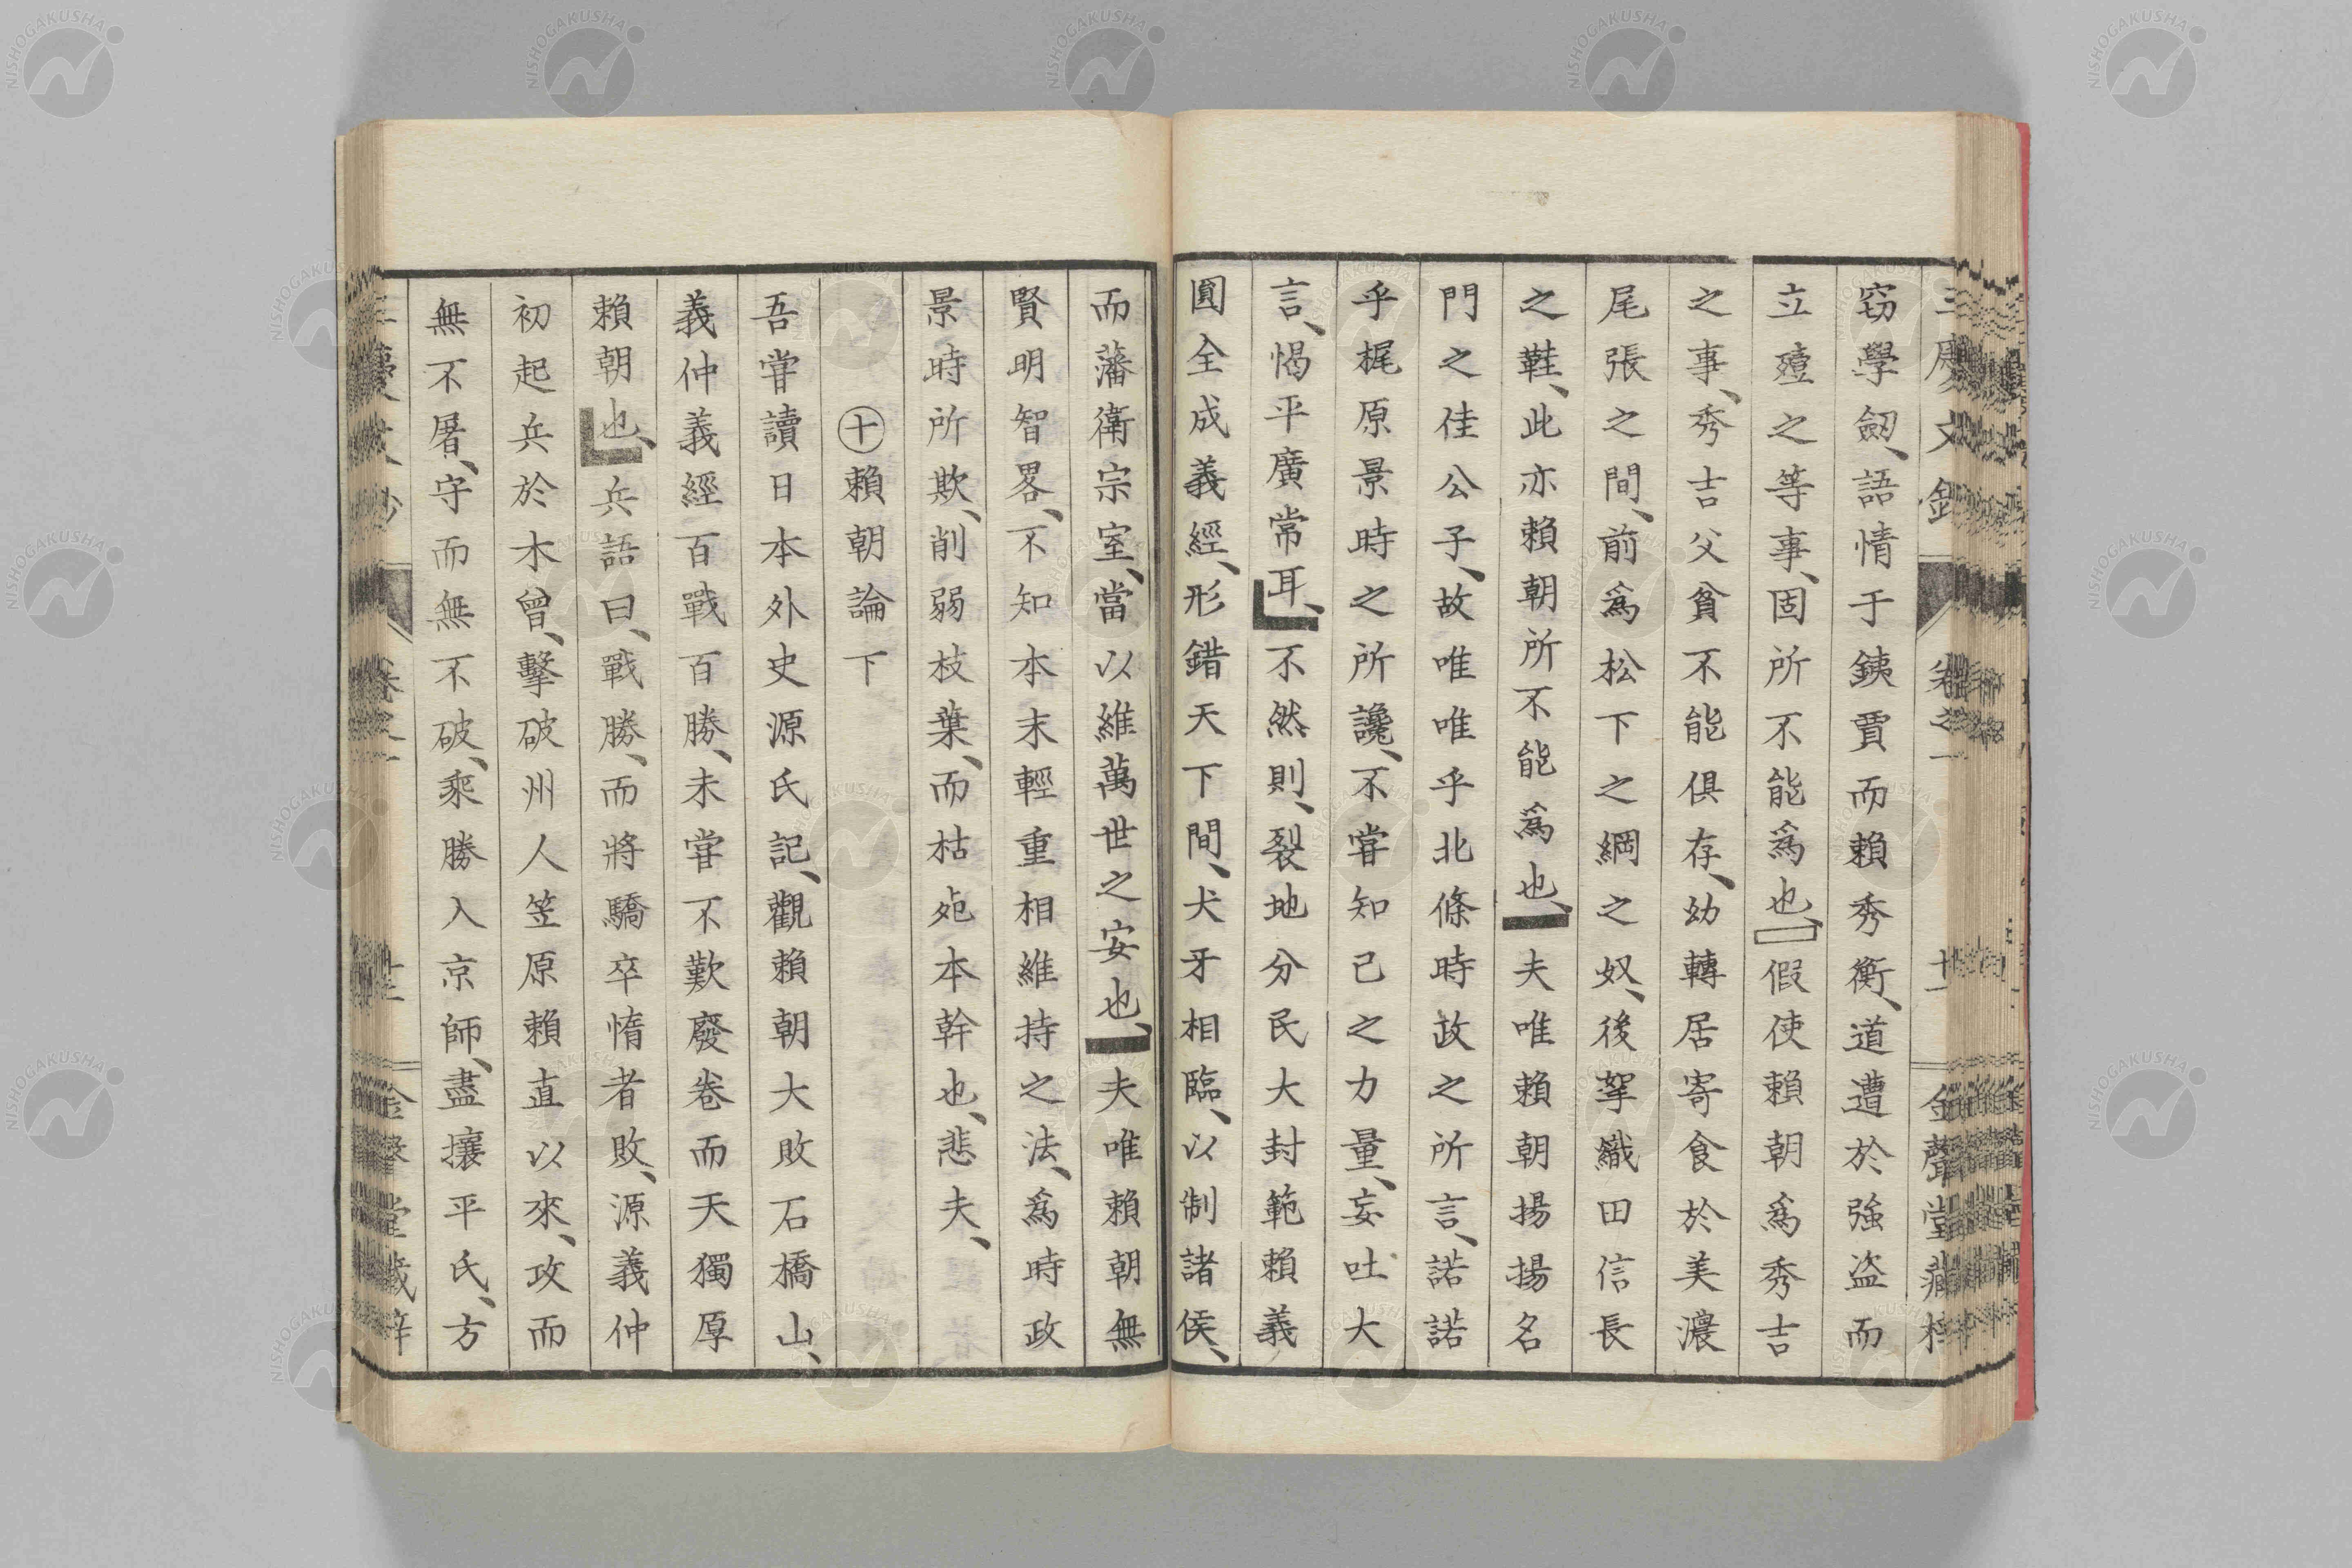 窃學劔、語情于銕賈而賴秀衡、道遭於強盗而
立殪之等事、固所不能爲也、假使賴朝爲秀吉
之事、秀吉父貧不能俱存、幼轉居寄食於美濃
尾張之間、前爲松下之綱之奴、後挐織田信長
之鞋、此亦賴朝所不能爲也、夫唯賴朝揚揚名
門之佳公子、故唯唯乎北條時政之所言、諾諾
乎梶原景時之所讒、不嘗知己之力量、妄吐大
言、愒平廣常耳、不然則、裂地分民大封範賴義
圓全成義經、形錯天下間、犬牙相臨、以制諸侯、
而藩衛宗室、當以維萬世之安也、夫唯賴朝無
賢明智畧、不知本末輕重相維持之法、爲時政
景時所欺、削弱枝葉、而枯㱠本幹也、悲夫、
十 賴朝論下
吾嘗讀日本外史源氏記、觀賴朝大敗石橋山、
義仲義經百戰百勝、未嘗不歎廢卷而天獨厚
賴朝也、兵語曰、戰勝、而將驕卒惰者敗、源義仲
初起兵於木曾、擊破州人笠原賴直以來、攻而
無不屠、守而無不破、乘勝入京師、盡攘平氏、方